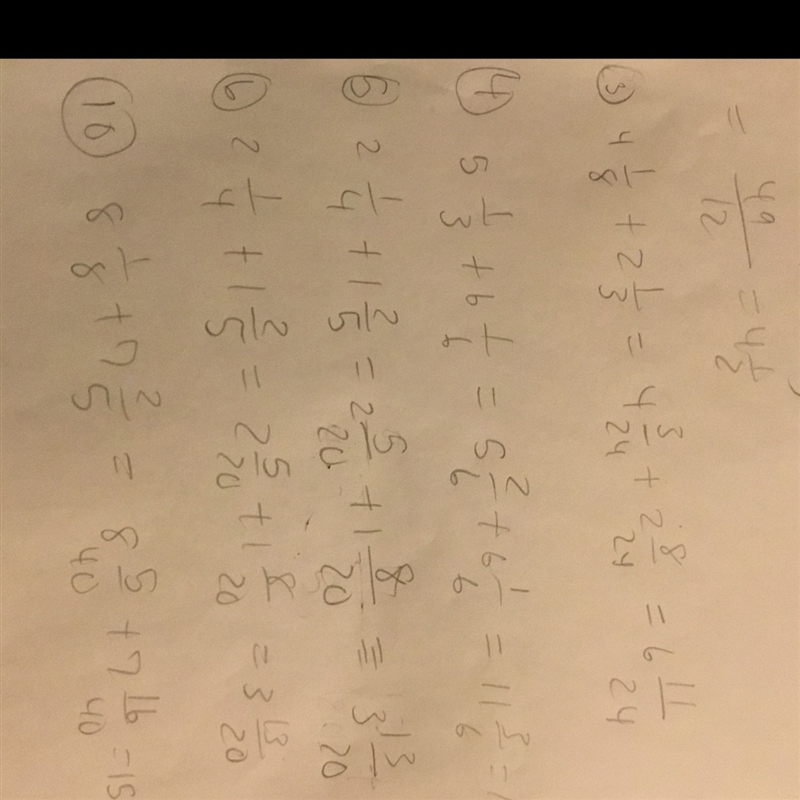 = 49/12 = 4 1/2
③ 4 1/8 + 2 1/3 = 4 3/24 + 2 8/24 = 6 11/24
④ 5 1/3 + 6 1/6 = 5 2/6 + 6 1/6 = 11 3/6 =
⑤ 2 1/4 + 1 2/5 = 2 5/20 + 1 8/20 = 3 13/20
⑥ 2 1/4 + 1 2/5 = 2 5/20 + 1 8/20 = 3 13/20
⑩ 8 1/8 + 7 2/5 = 8 5/40 + 7 16/40 = 15